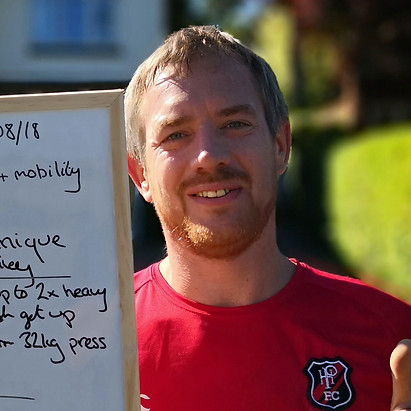 08/18
+ mobility
nique
key
up to 2x heavy
get up
32kg press
H
F.C